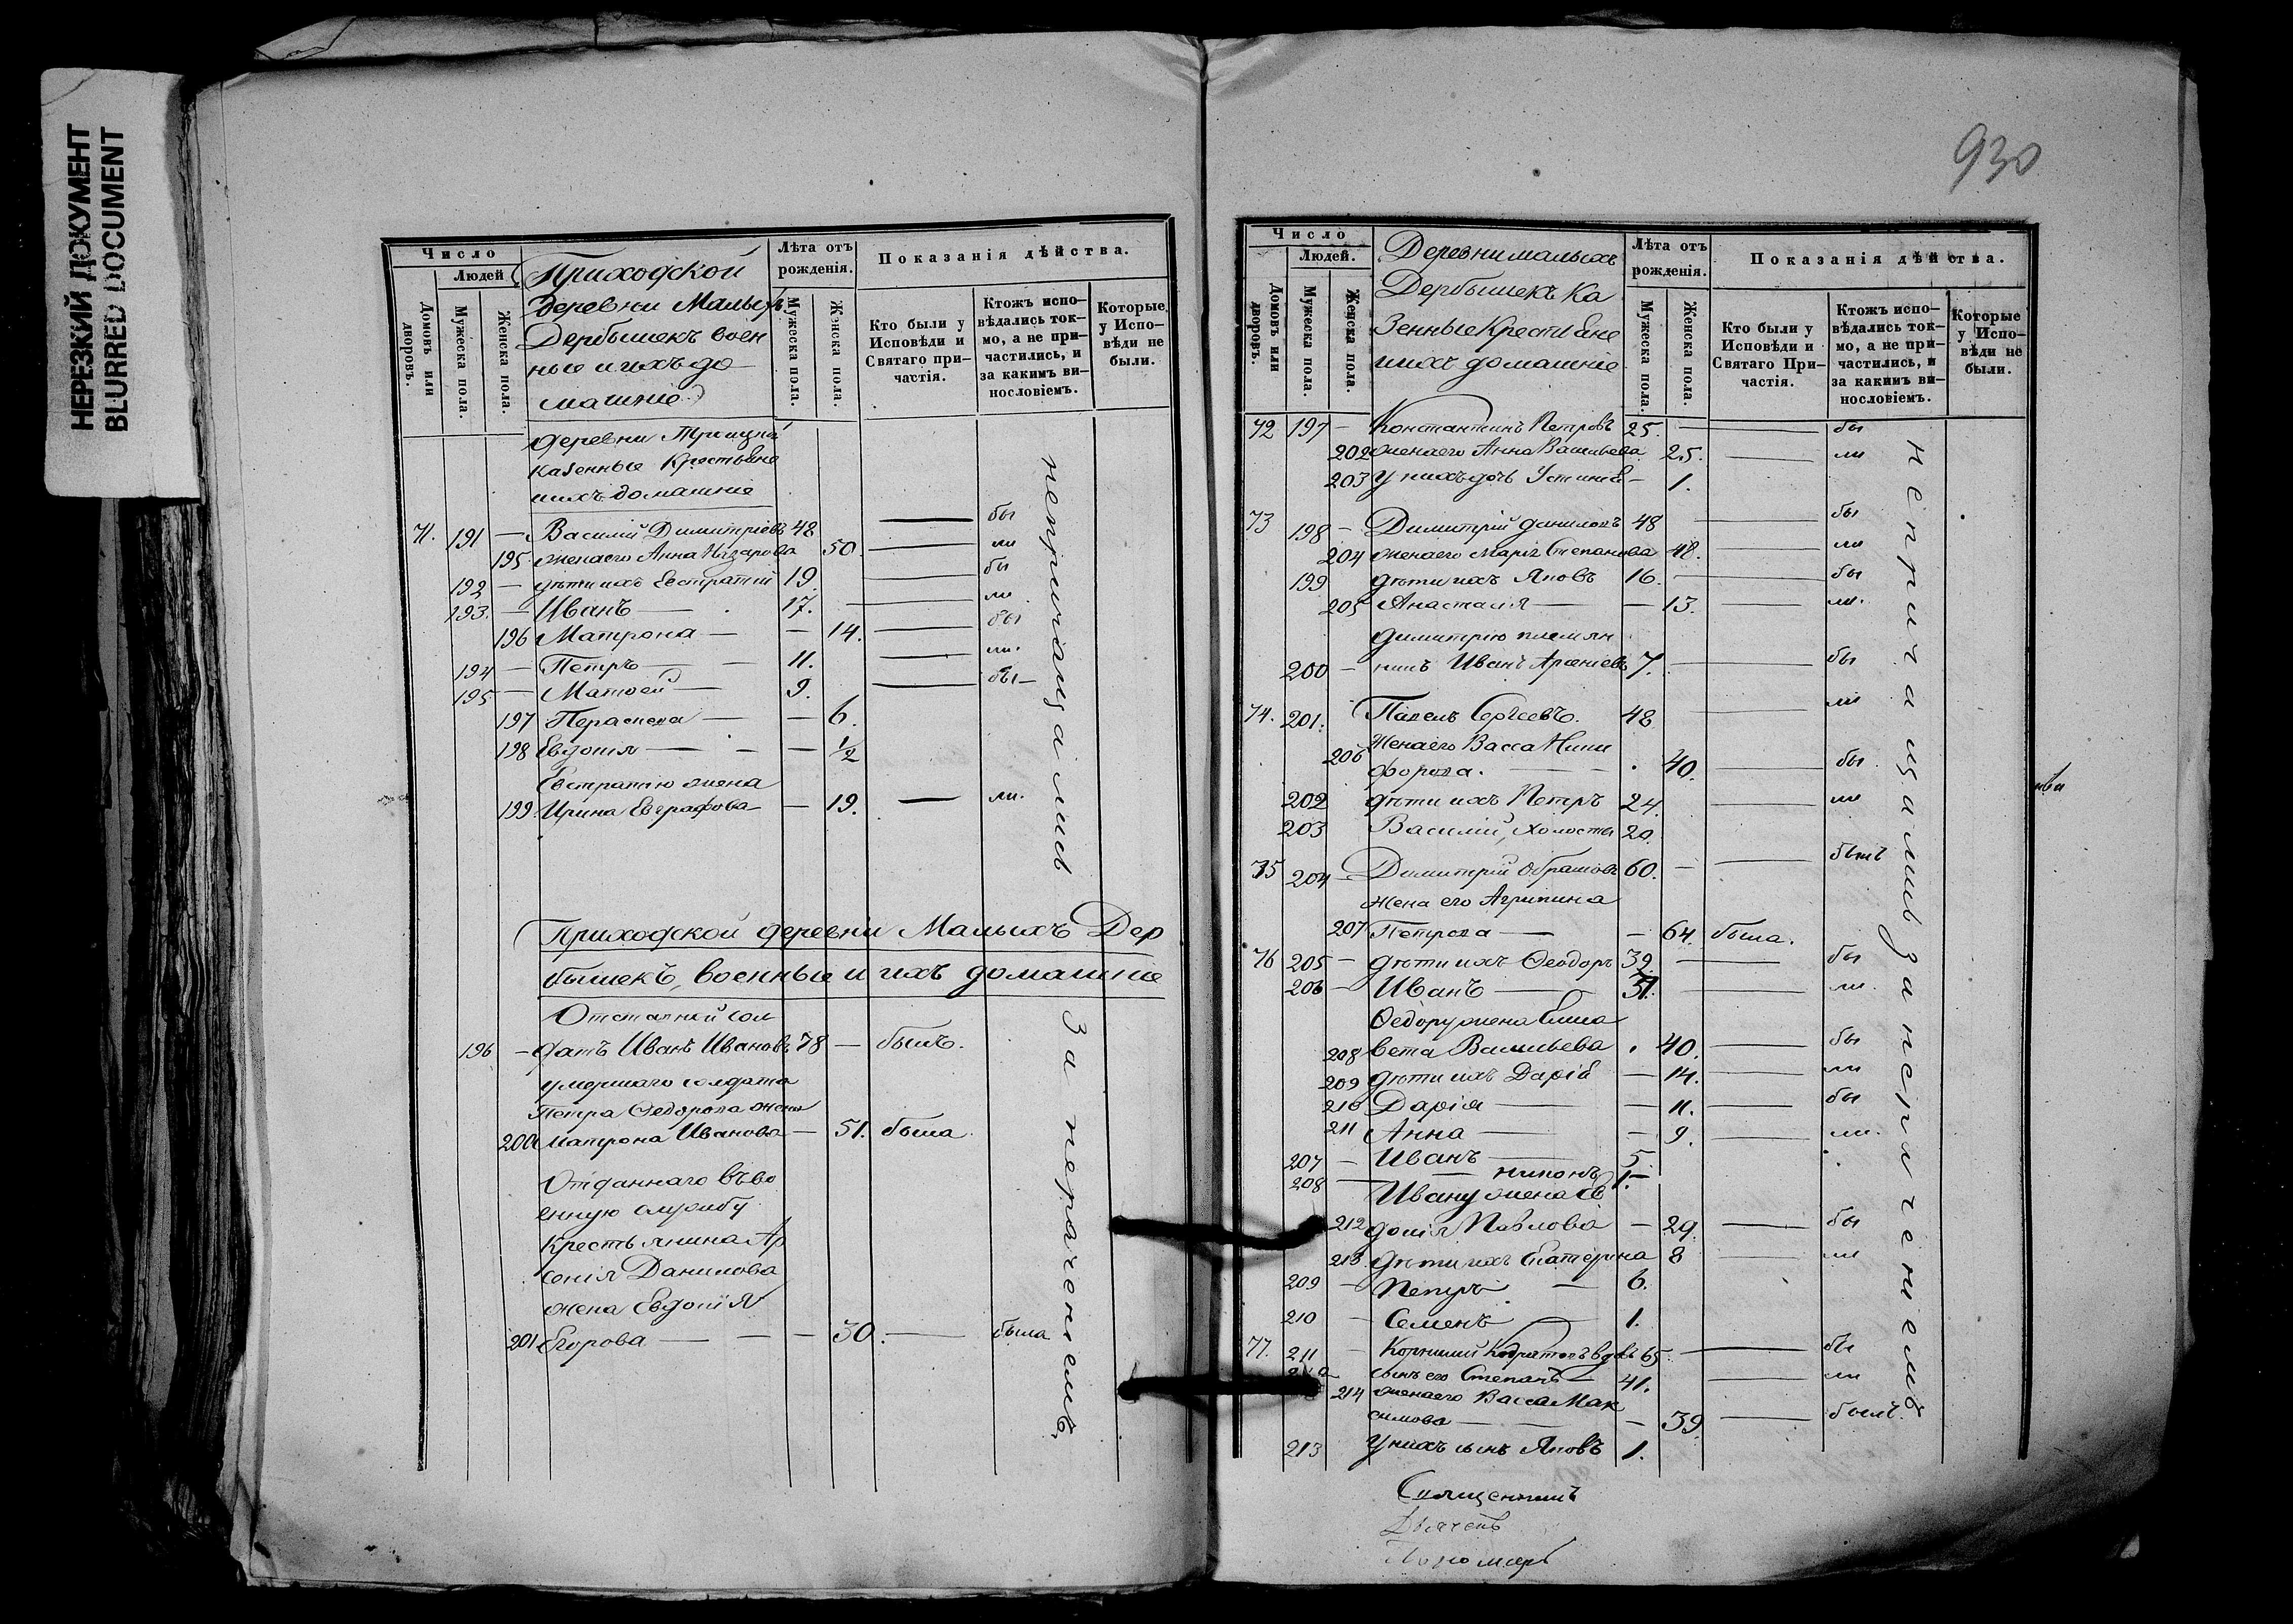 НЕРЕЗКИЙ ДОКУМЕНТ
BLURRED DOCUMENT
Число
Людей
Домовъ или дворовъ.
Мужеска пола.
Женска пола.
Приходской
деревни Малыхъ
Дербышекъ воен
ные и ихъ до
машніе
Лѣта отъ рожденія.
Мужеска пола.
Женска пола.
Показанія дѣйства.
Кто были у Исповѣди и Святаго причастія.
Ктожъ исповѣдались токмо, а не причастились, и за какимъ винословіемъ.
Которые у Исповѣди не были.
деревни
казенные Крестьяне
и ихъ домашніе
71. 191 — Василій Димитріевъ 48 — бы
195 жена его Анна Назарова 50. — ли
192 — дѣти ихъ Евстратій 19 — бы
193. — Иванъ — 17. — ли
196 Матрона — — 14. — бы
194 — Петръ — — 11. — ли.
195 — Матвей — 9. — бы —
197 Параскева — — 6.
198 Евдокія — — — ½
Евстратію жена
199 Ирина Евграфова — 19. — ли.
непричащались
Приходской деревни Малыхъ Дер
бышекъ, военные и ихъ домашніе
Отставной сол
196 — датъ Иванъ Ивановъ 78 — былъ.
умершаго солдата
Петра Ѳедорова жена
200 Матрона Иванова — 51. была
Отданнаго въ во
енную службу
Крестьянина Ар
сенія Данилова
жена Евдокія
201 Егорова — — — 30. — была
за пераченіемъ
930
Число
Людей.
Домовъ или дворовъ.
Мужеска пола
Женска пола.
Деревни малыхъ
Дербышекъ Ка
зенные Крестьяне
и ихъ домашніе
Лѣта отъ рожденія.
Мужеска пола.
Женска пола.
Показанія дѣйства.
Кто были у Исповѣди и Святаго Причастія.
Ктожъ исповѣдались токмо, а не причастились, и за какимъ винословіемъ.
Которые у Исповѣди не были.
72 197 — Константинъ Петровъ 25. — — бы
202 жена его Анна Васильева 25. — ли
203 у нихъ дочь Устинія — 1.
73 198 — Димитрій Даниловъ 48 — бы
204 жена его Марія Степанова 48. — ли
199 дѣти ихъ Яковъ 16. — бы
205 Анастасія — — 13. — ли.
Димитрію племян
200 — никъ Иванъ Арсеніевъ 7. — бы
74. 201. Павелъ Сергеевъ. 48 — ли
Жена его Васса Ники
206 форова. — . 40. — бы
202 дѣти ихъ Петръ 24. — ли
203 Василій, холосты 20.
75 204 — Димитрій 60. — — былъ
жена его Агрипина
207 Петрова — — 64. была.
76 205 — дѣти ихъ Ѳеодоръ 39. — бы
206 — Иванъ — 31. — ли.
Ѳедору жена Елиса
208 вета Васильева . 40. — бы
209 дѣти ихъ Дарія — 14. — ли
210 Дарія — — 11. — бы
211 Анна — — 9. — ли.
207 — Иванъ — 5.
208 — Никонъ 1. —
Ивану жена Ев
212 докія Павлова — 29. — бы
213 дѣти ихъ Екатерина 8 — ли
209 — Петръ — 6.
210 — Семенъ — 1.
77. 211 — Корнилий вдовъ 65. — бы
сынъ его Степанъ — 41. — ли
214 жена его Васса Мак
симова — — 39. — былъ.
213 у нихъ сынъ Яковъ 1.
непричащались за нерачениемъ
Священникъ
Дьячекъ
Пономарь